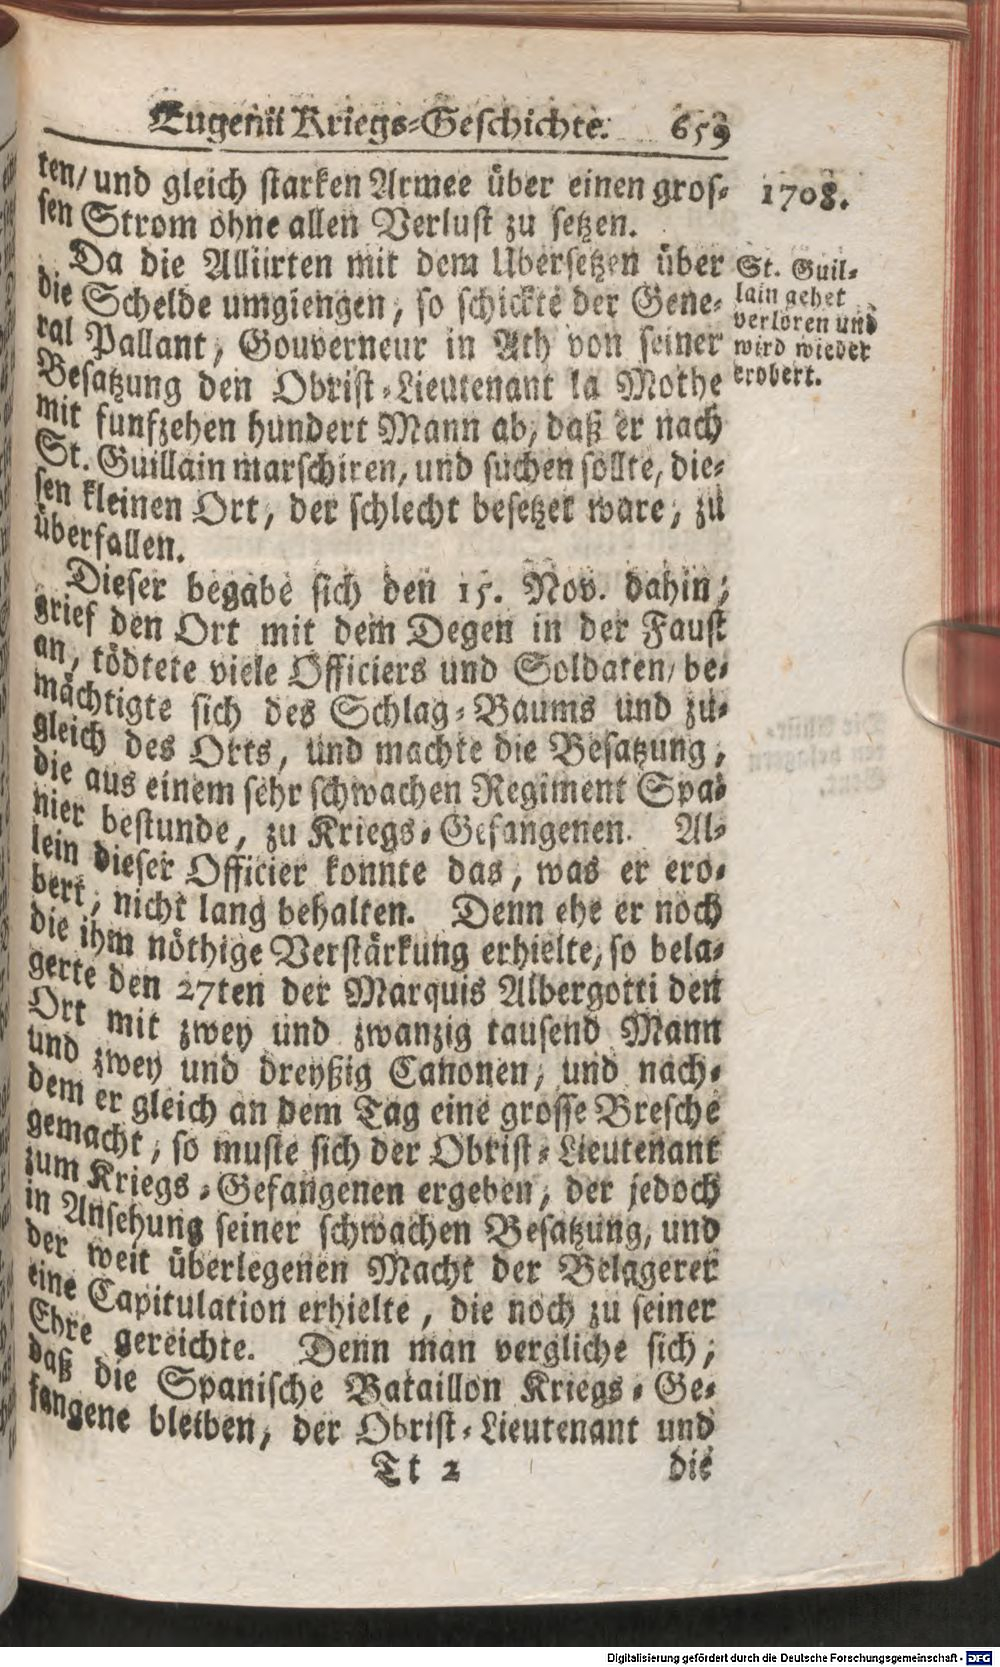 Eugenii Kriegs-Geschichte. 659
ten/ und gleich starken Armee über einen gros-
sen Strom ohne allen Verlust zu setzen.
1708.
Da die Alliirten mit dem Ubersetzen über
die Schelde umgiengen, so schickte der Gene-
ral Pallant, Gouverneur in Ath von seiner
Besatzung den Obrist-Lieutenant la Mothe
mit funfzehen hundert Mann ab, daß er nach
St. Guillain marschiren, und suchen sollte, die-
sen kleinen Ort, der schlecht besetzet ware, zu
überfallen.
St. Guil-
lain gehet
verloren und
wird wieder
erobert.
Dieser begabe sich den 15. Nov. dahin,
grief den Ort mit dem Degen in der Faust
an, tödtete viele Officiers und Soldaten/ be-
mächtigte sich des Schlag-Baums und zu-
gleich des Orts, und machte die Besatzung,
die aus einem sehr schwachen Regiment Spa-
nier bestunde, zu Kriegs-Gefangenen. Al-
lein dieser Officier konnte das, was er ero-
bert, nicht lang behalten. Denn ehe er noch
die ihm nöthige Verstärkung erhielte, so bela-
gerte den 27ten der Marquis Albergotti den
Ort mit zwey und zwanzig tausend Mann
und zwey und dreyßig Canonen, und nach-
dem er gleich an dem Tag eine grosse Bresche
gemacht, so muste sich der Obrist-Lieutenant
zum Kriegs-Gefangenen ergeben, der jedoch
in Ansehung seiner schwachen Besatzung, und
der weit überlegenen Macht der Belagerer
eine Capitulation erhielte, die noch zu seiner
Ehre gereichte. Denn man vergliche sich,
daß die Spanische Bataillon Kriegs-Ge-
fangene bleiben, der Obrist-Lieutenant und
Tt 2 die
Digitalisierung gefördert durch die Deutsche Forschungsgemeinschaft - DFG